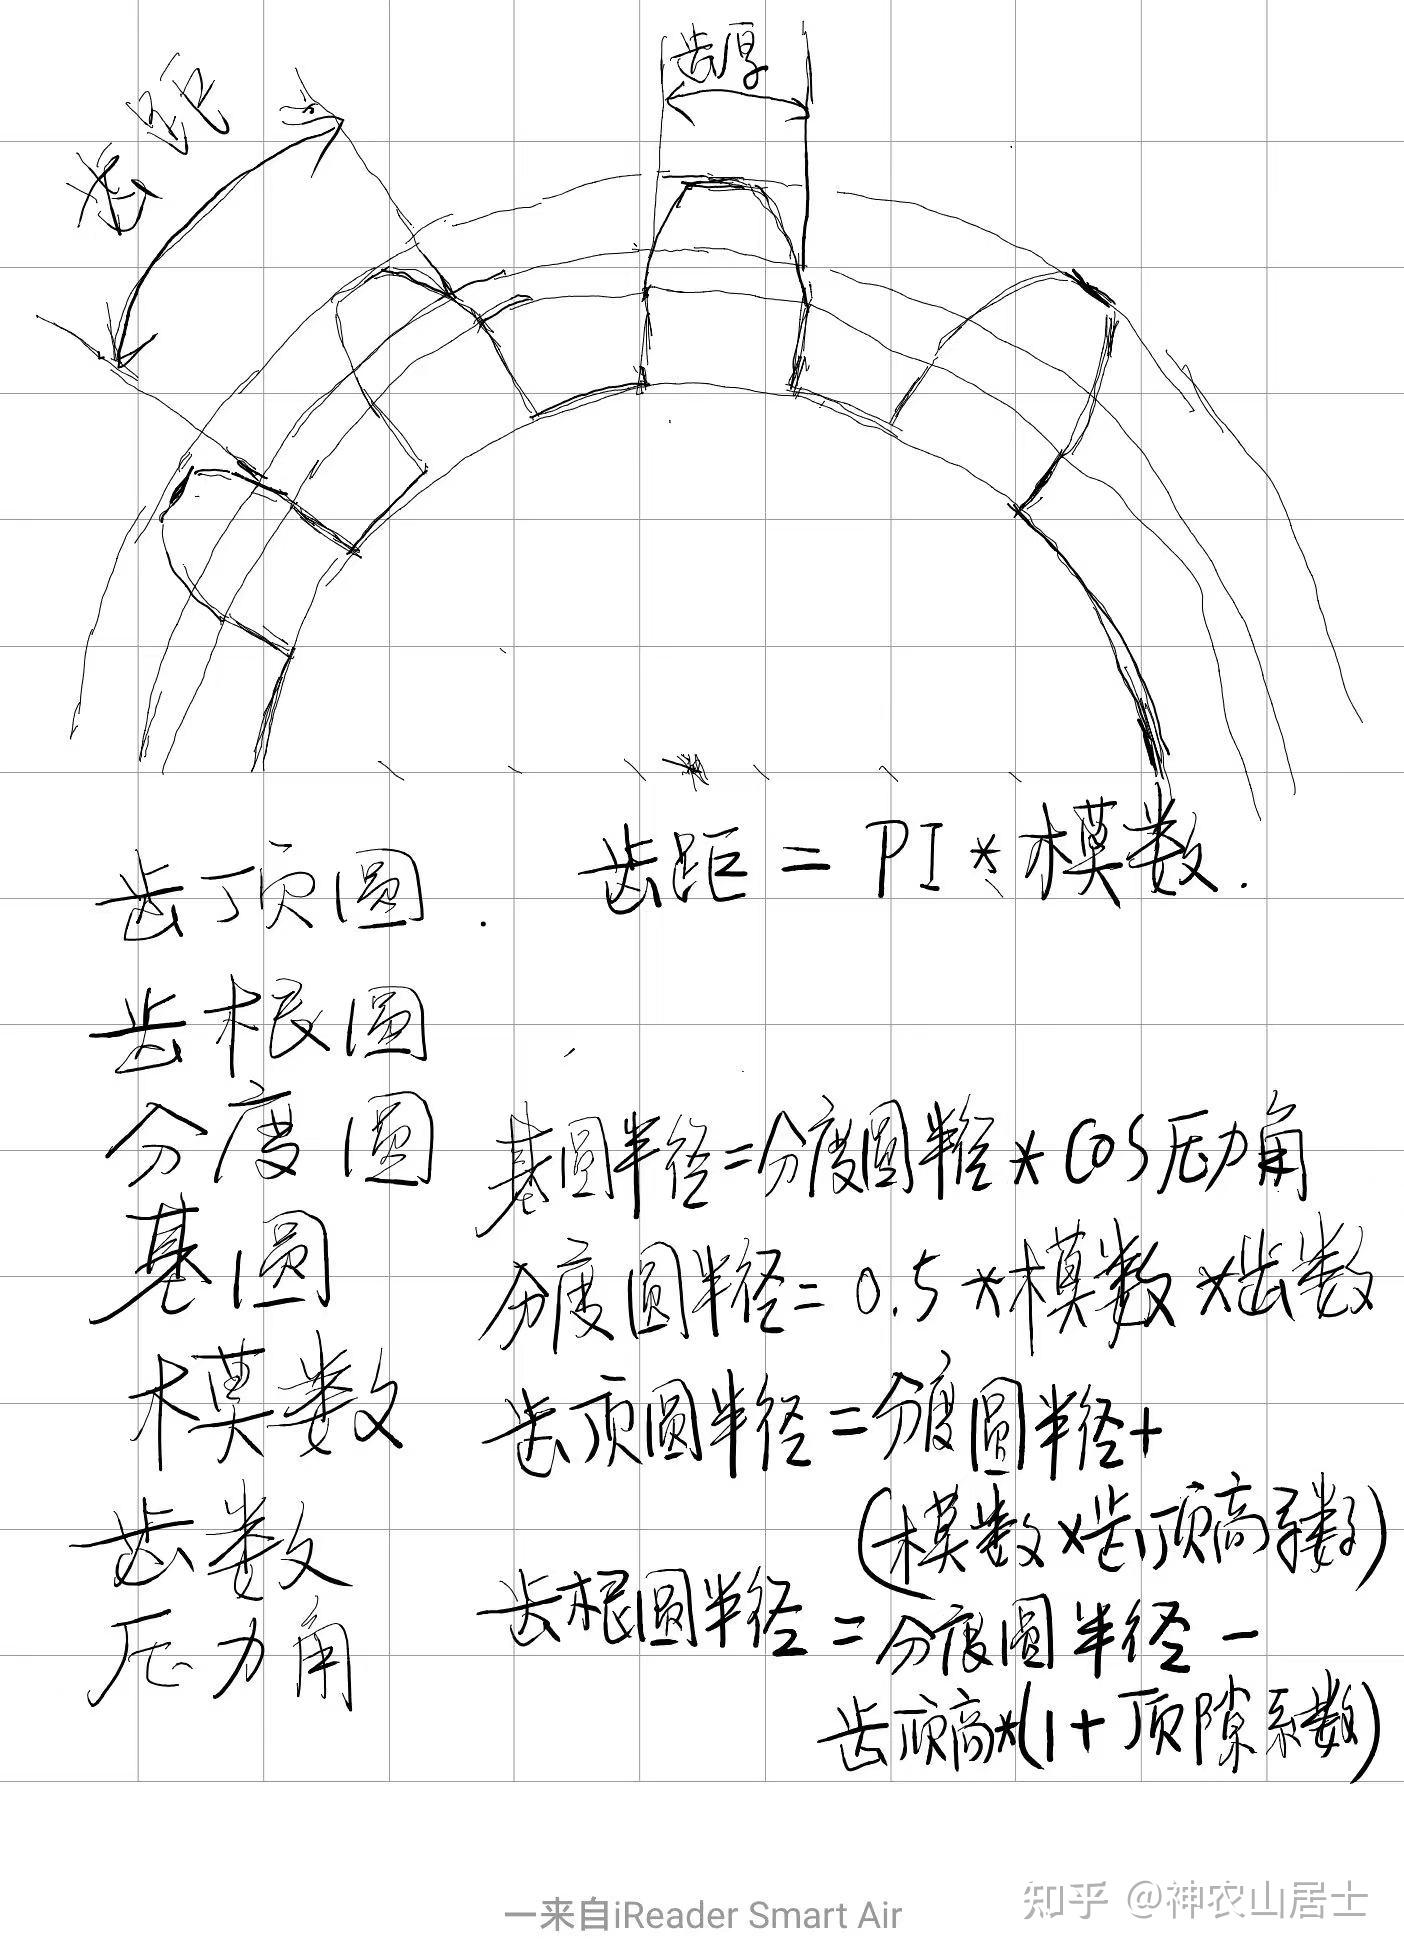 齿厚
齿距
齿顶圆.
齿距 = PI * 模数.
齿根圆
分度圆
基圆半径=分度圆半径 * COS压力角
基圆
分度圆半径= 0.5 *模数*齿数
模数
齿顶圆半径=分度圆半径+
(模数*齿顶高系数)
齿数
齿根圆半径=分度圆半径-
压力角
齿顶高*(1+顶隙系数)
一来自iReader Smart Air
知乎 @神农山居士